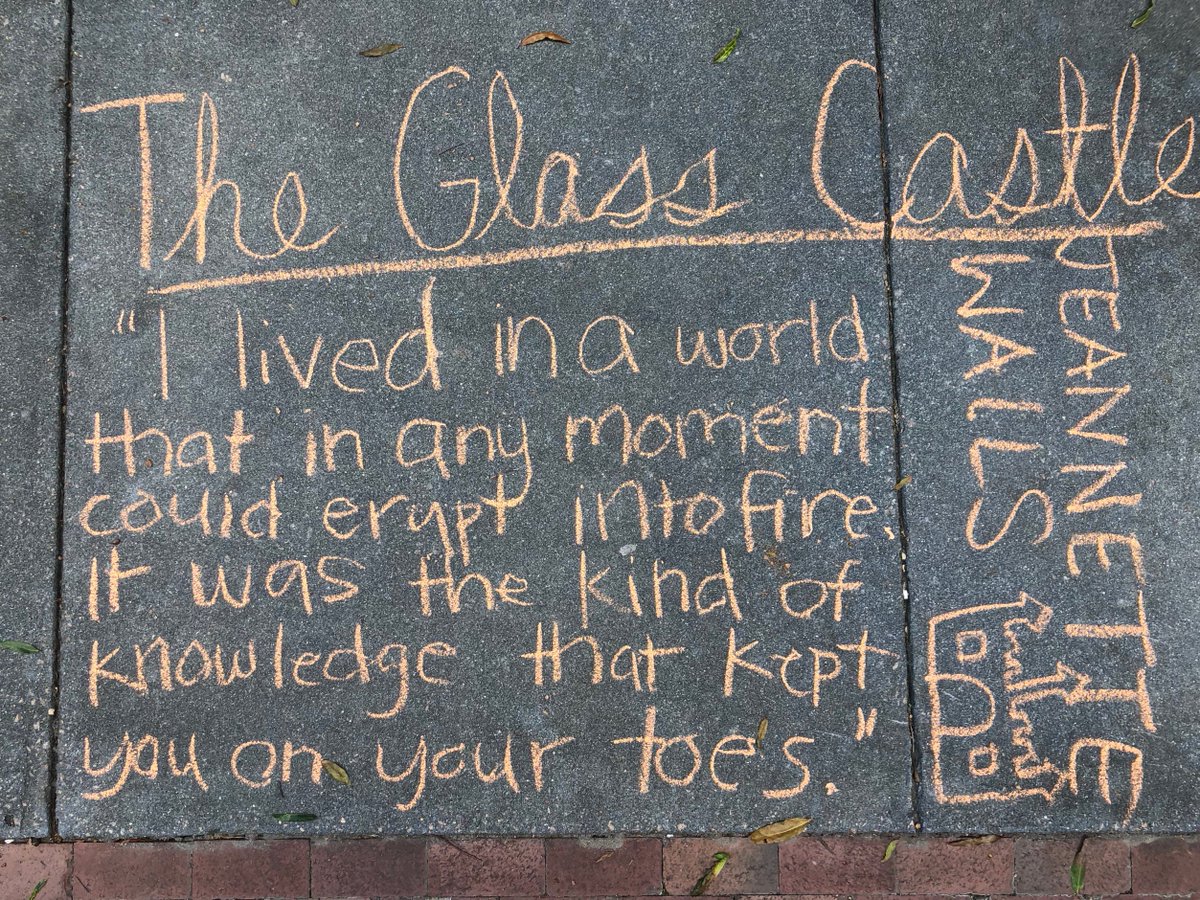 The Glass Castle
"I lived in a world
that in any moment
could erypt into fire.
It was the kind of
knowledge that kept
you on your toes."
JEANNETTE
WALLS